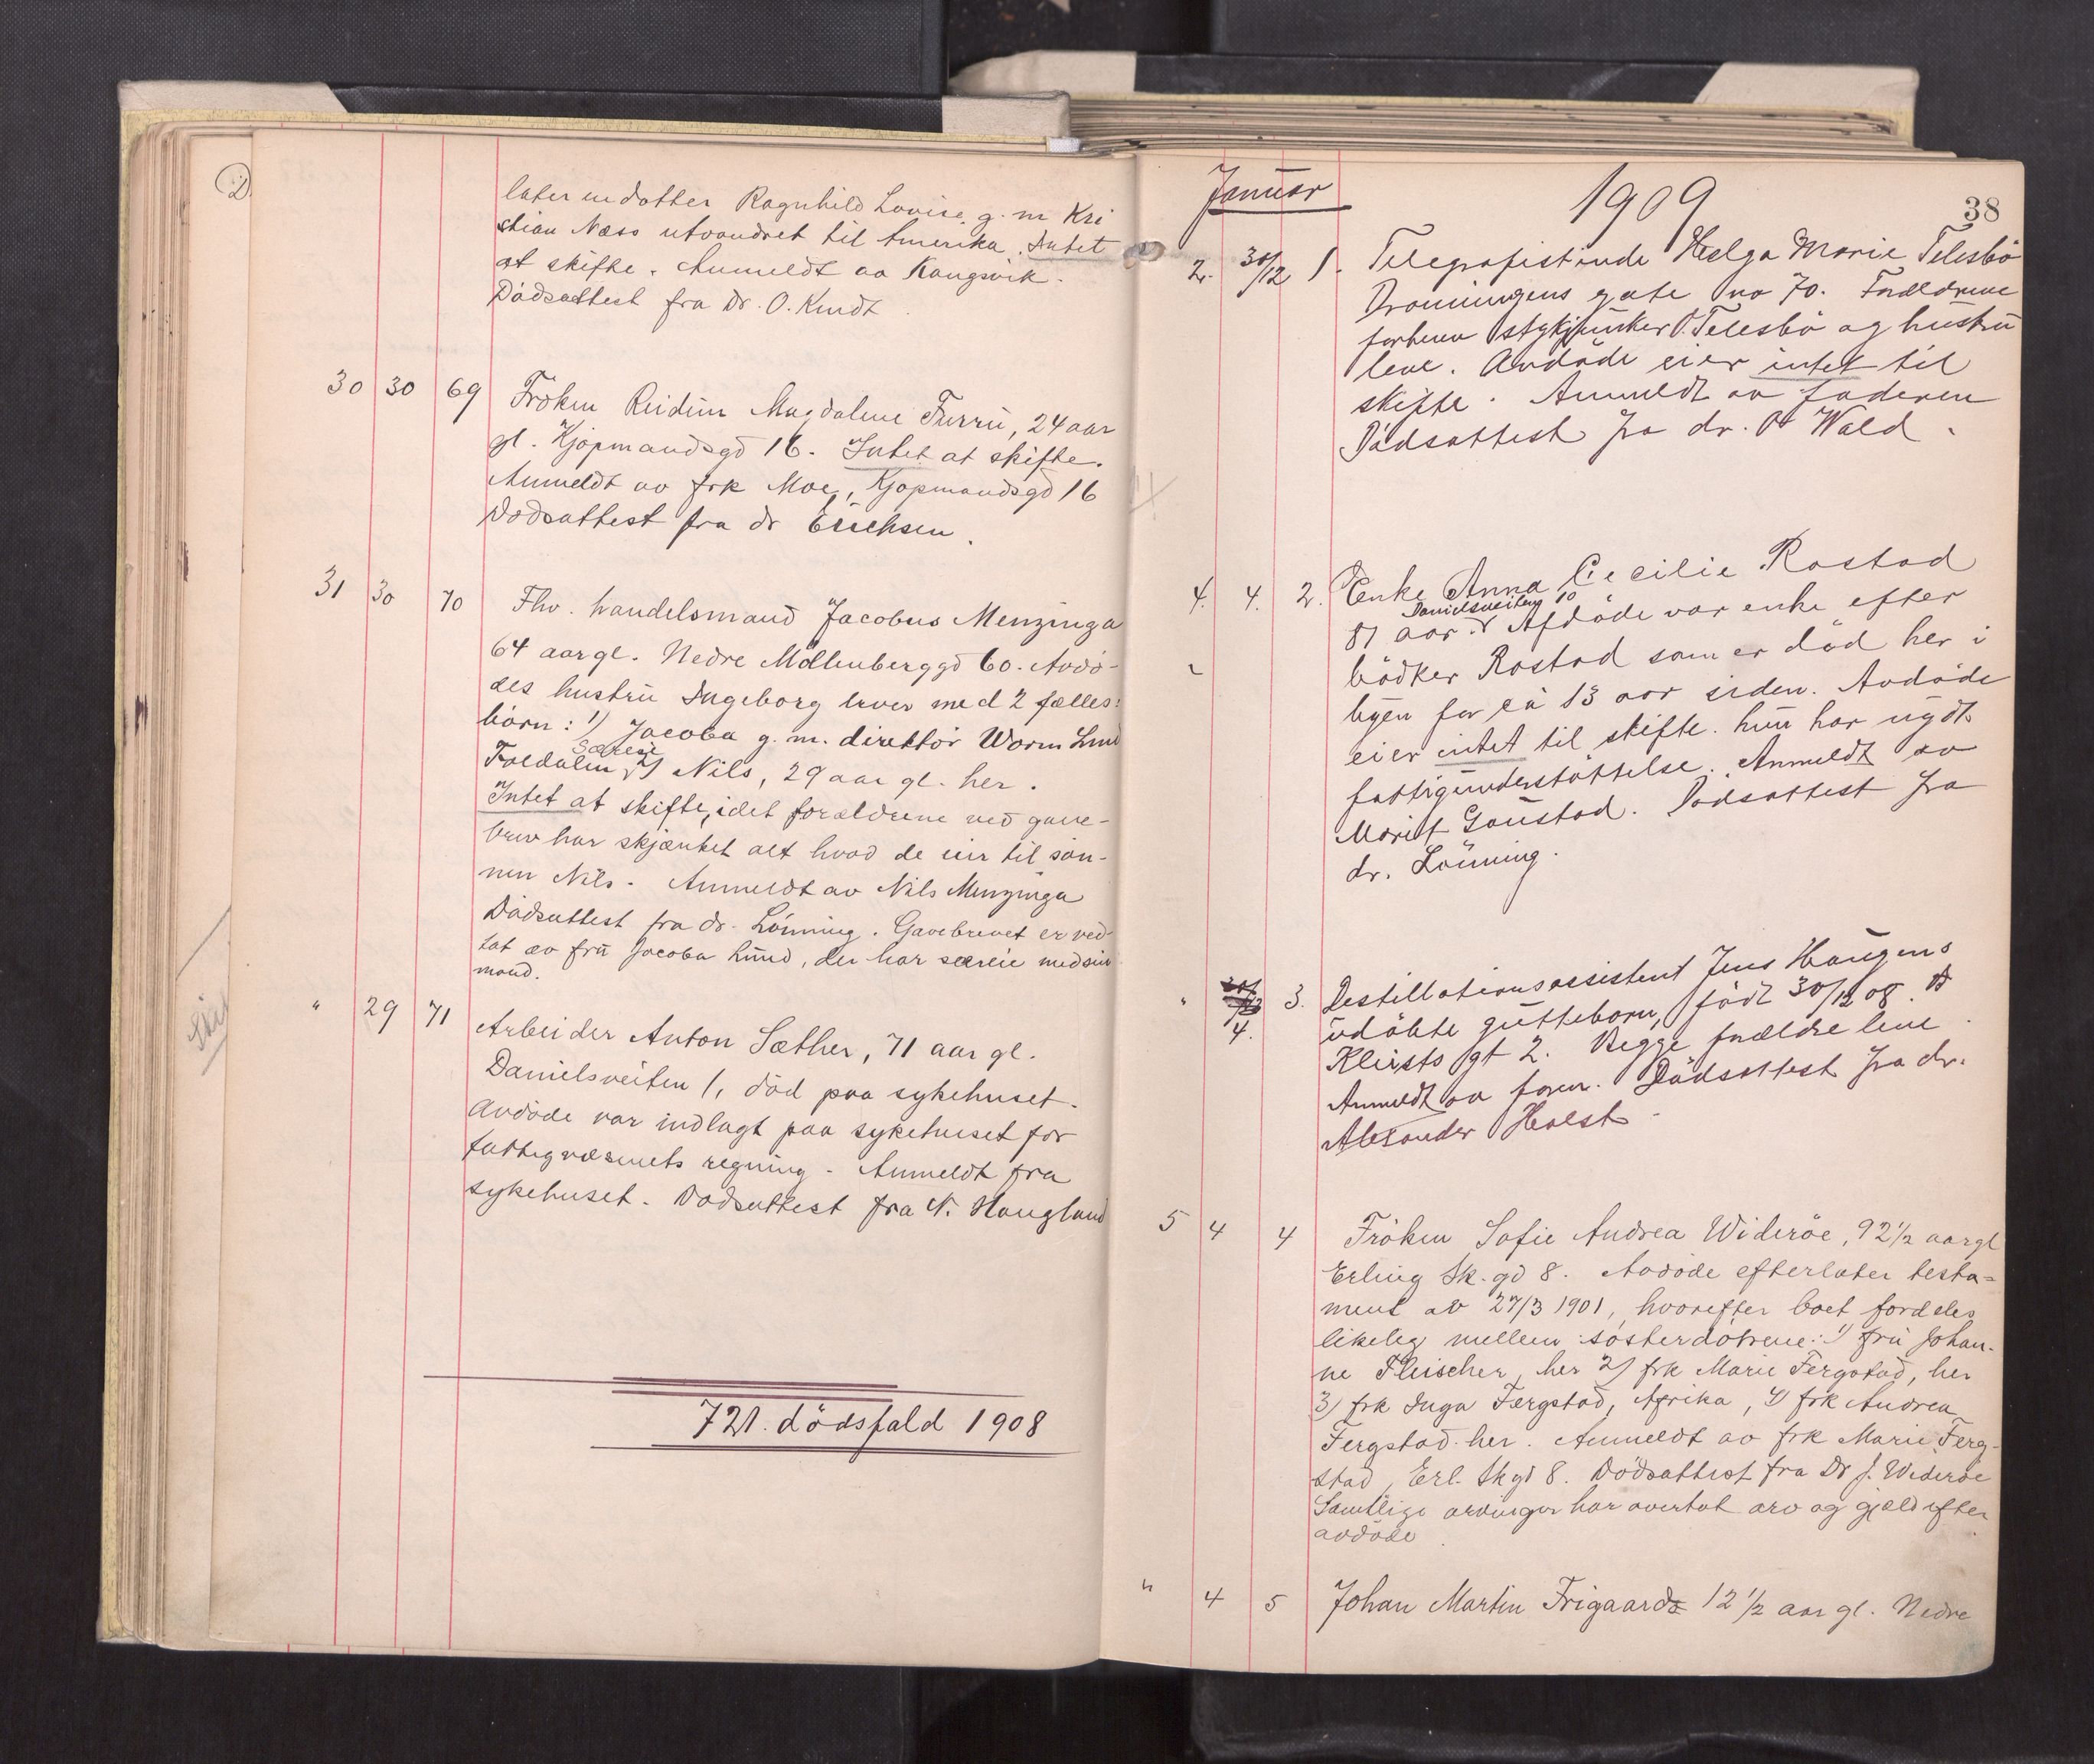 later en datter Ragnhild Lovise, g. m Kri
stian Næss utvandret til Amerika. Intet
at skifte. Anmeldt av Kangsvik.
Dödsattest fra Dr. O. Kindt
30 30 69 Fröken Reidun Magdalene Furru, 24 aar
gl. Kjöpmandsgd 16. Intet at skifte.
Anmeldt av frk Moe, Kjöpmandsgd 16
Dödsattest fra dr Erichsen.
31 30 70 Fhv. handelsmand Jacobus Menzinga
64 aar gl. Nedre Möllenberggd 60. Avdö-
des hustru Ingeborg lever med 2 fælles:
börn: 1) Jacoba g. m. direktör Worm Lund
Særeie
Foldalen 2) Nils, 29 aar gl. her.
Intet at skifte, idet forældrene ved gave-
brev har skjænket alt hvad de eier til søn-
nen Nils. Anmeldt av Nils Menzinga
Dödsattest fra dr. Lönning. Gavebrevet er ved-
tat av fru Jacoba Lund, der har særeie med sin
mand.
" 29 71 Arbeider Anton Sæther, 71 aar gl.
Danielsveiten 1, död paa sykehuset.
Avdöde var indlagt paa sykehuset for
fattigvæsenets regning. Anmeldt fra
sykehuset. Dödsattest fra N. Haugland
721. dödsfald 1908
Januar 1909 38
2. 30/12 1. Telegrafistinde Helga Marie Telesbö
Dronningens gate no 70. Forældrene
forhenv stykjunker O. Telesbö og hustru
leve. Avdöde eier intet til
skifte. Anmeldt av faderen
Dödsattest fra dr. Wald.
4. 4. 2. Enke Anna Cecilie Rostad
Danielsveiten 10
87 aar. Afdöde var enke efter
bödker Rostad som er död her i
byen for ca 13 aar siden. Avdöde
eier intet til skifte. hun har nydt
fattigunderstöttelse. Anmeldt av
Marit Gaustad. Dödsattest fra
dr. Lönning.
" 4. 3. Destillationsassistent Jens Haugens
udöbte guttebarn, födt 30/12 08.
Kleists gt 2. Begge forældre leve.
Anmeldt av faren. Dödsattest fra dr.
Alexander Holst.
5 4 4 Fröken Sofie Andrea Wideröe, 92 1/2 aar gl
Erling Sk. gd 8. Avdöde efterlater testa-
ment av 27/3 1901, hvorefter boet fordeles
likelig mellem sösterdötrene: 1) fru Johan-
ne Fleischer, her 2) frk Marie Fergstad, her
3) frk Inga Fergstad, Afrika, 4) frk Andrea
Fergstad. her. Anmeldt av frk Marie Ferg-
stad, Erl. Skgd 8. Dödsattest fra Dr J. Wideröe
Samtlige arvinger har overtat arv og gjeld efter
avdöde.
" 4 5 Johan Martin Frigaard 12 1/2 aar gl. Nedre